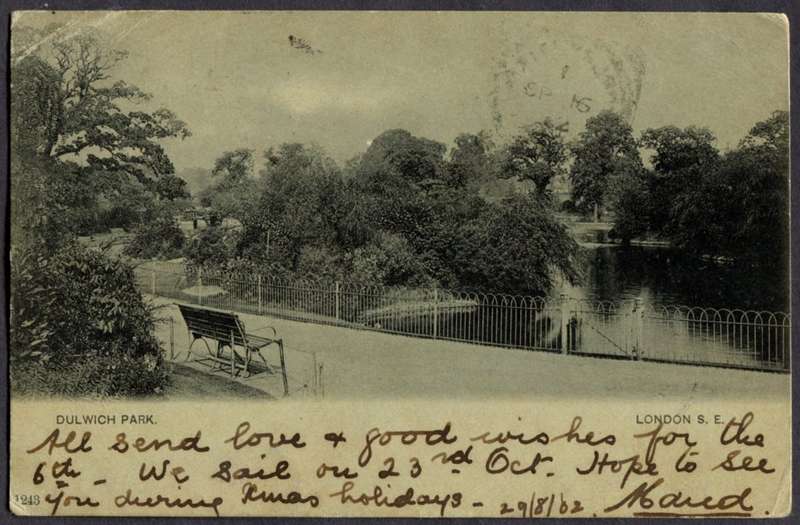 1
SP 16
DULWICH PARK.
LONDON S. E.
All send love & good wishes for the
6th - We sail on 23rd Oct. Hope to see
1243
you during Xmas holidays - 29/8/02. Maud.